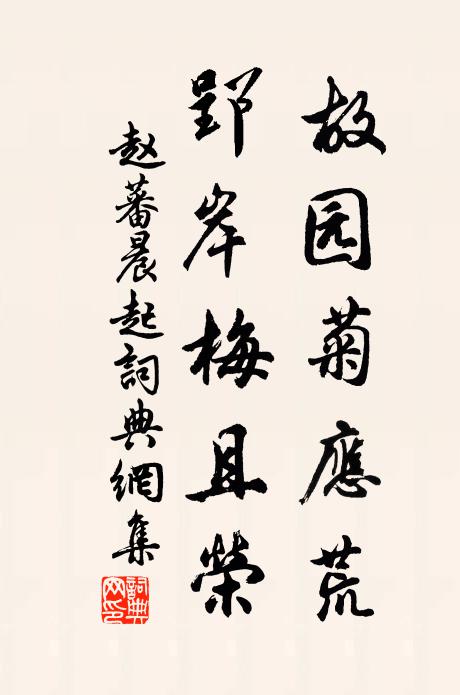 故园菊應荒
郢岸梅且榮
赵蕃晨起詞典網集
詞典网印